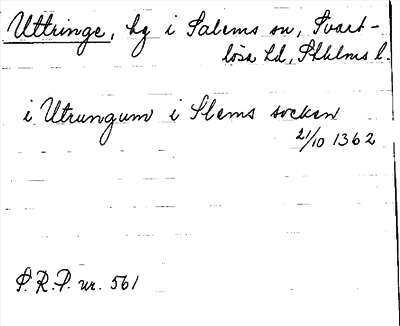 Uttringe, hg i Salems sn, Svart-
lösa hd, Sthlms l.
i Utrungum i Slems socken
21/10 1362
S.R.P. nr. 561